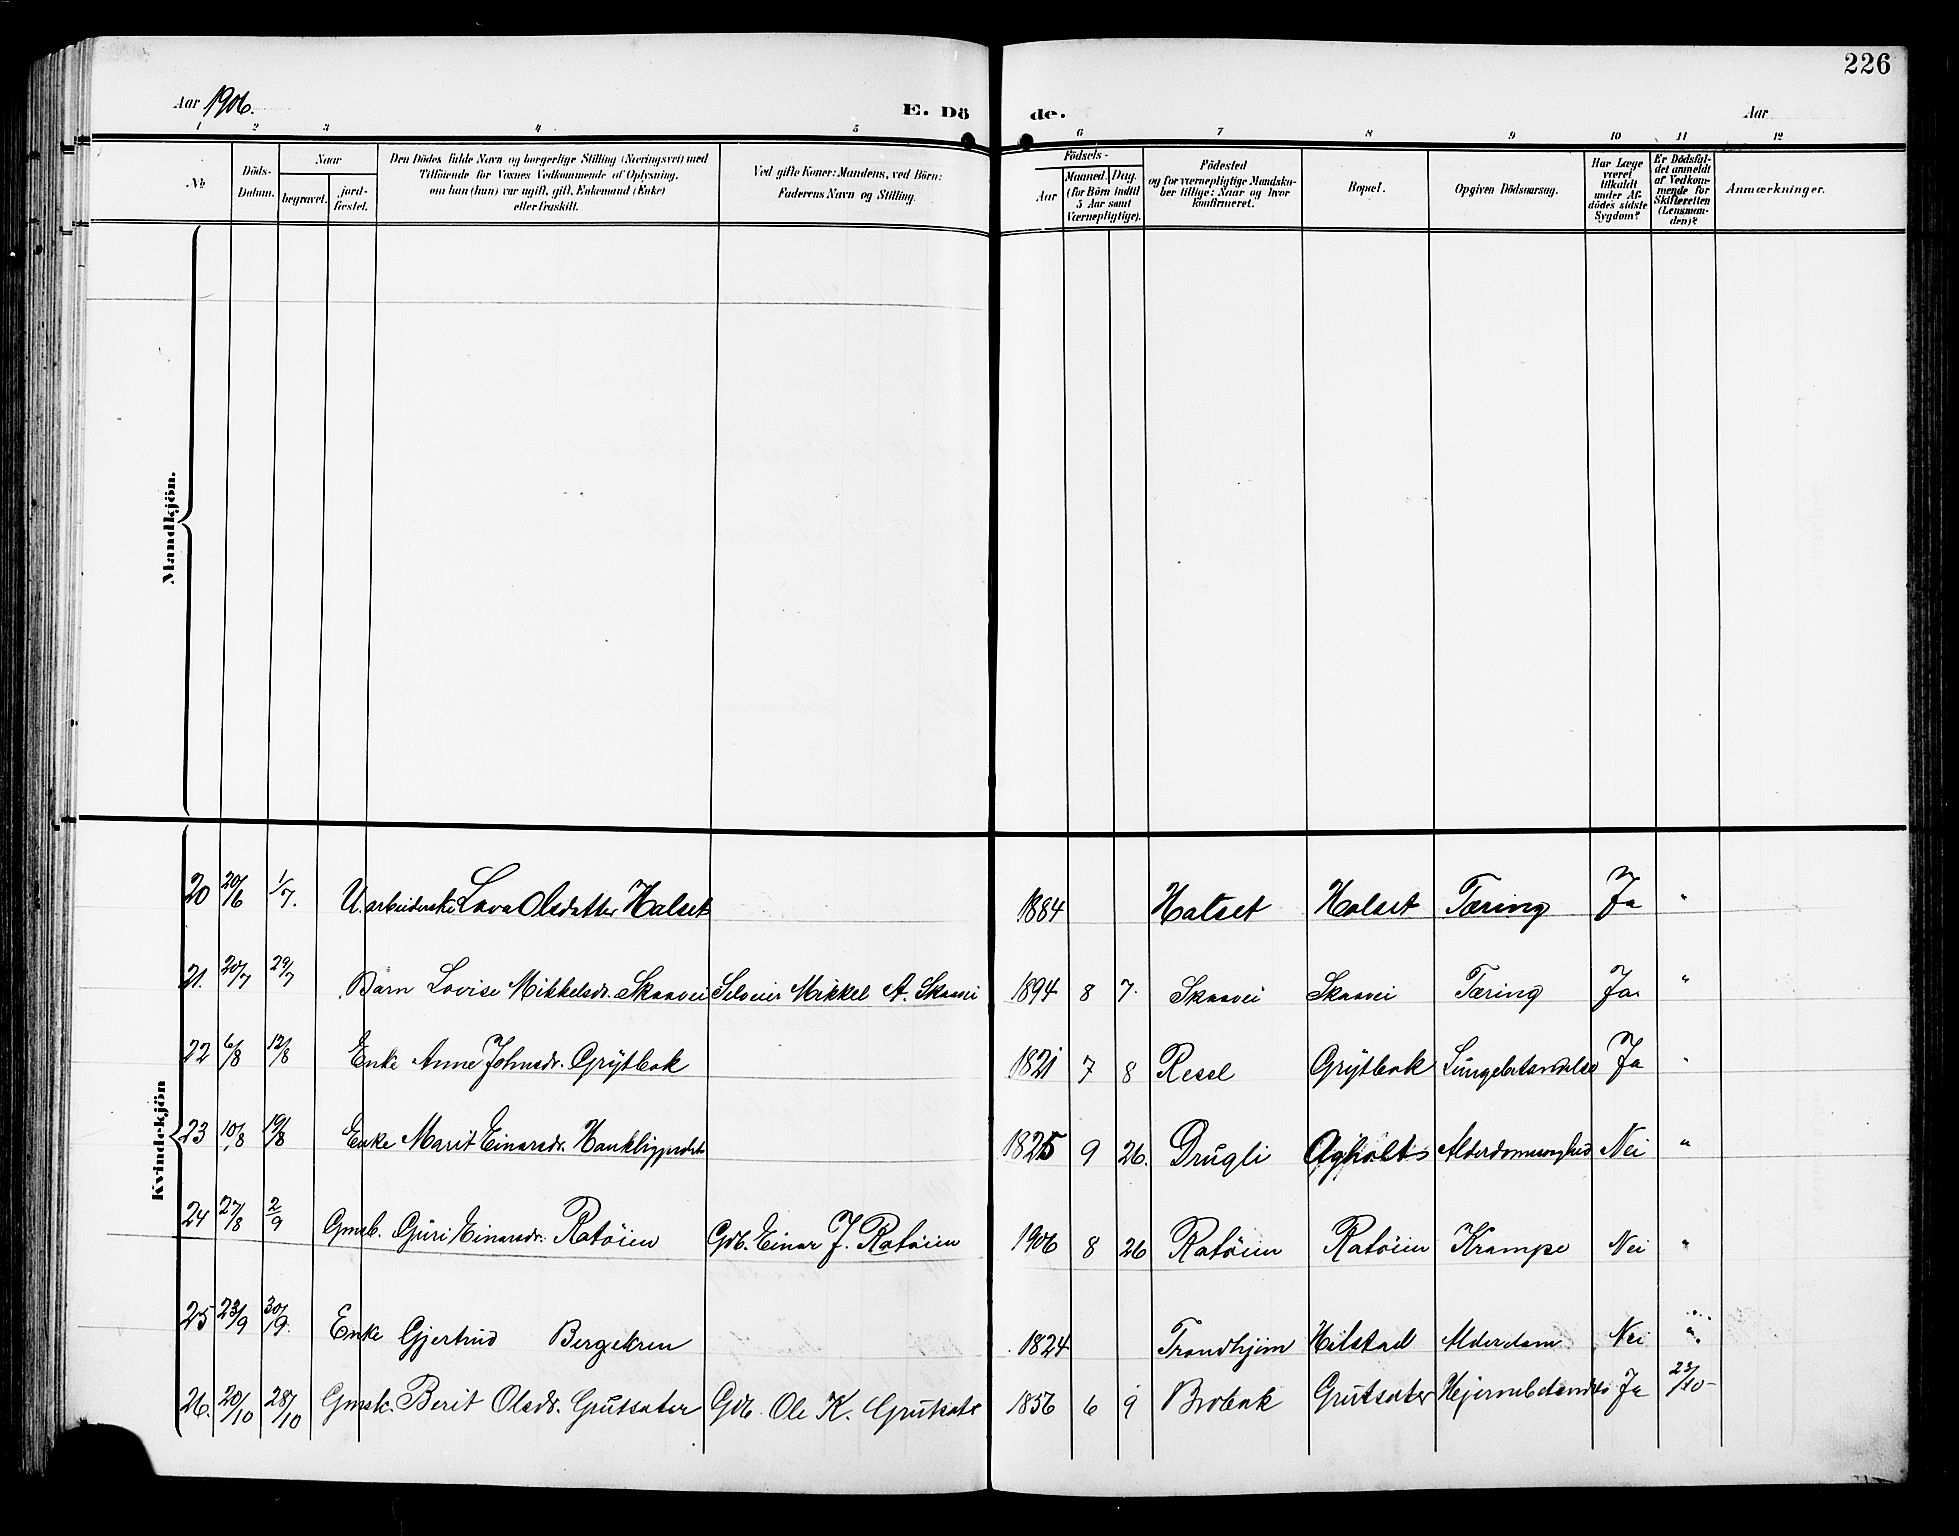 226
Aar 1906.
E. Dö de.
Aar
1 2 3 4 5 6 7 8 9 10 11 12
No
Döds-Datum.
Naar
begravet.
jord-fæstet.
Den Dödes fulde Navn og borgerlige Stilling (Næringsvei) med
Tilföiende for Voxnes Vedkommende af Oplysning,
om han (hun) var ugift, gift, Enkemand (Enke)
eller fraskilt.
Ved gifte Koner: Mandens, ved Börn:
Faderens Navn og Stilling.
Födsels-
Aar
Maaned. Dag.
(for Börn indtil
5 Aar samt
Værnepligtige).
Födested
og for værnepligtige Mandska-
ber tillige: Naar og hvor
konfirmeret.
Bopæl.
Opgiven Dödsaarsag.
Har Læge
været
tilkaldt
under Af-
dödes sidste
Sygdom?
Er Dödsfal-
det anmeldt
af Vedkom-
mende for
Skifteretten
(Lensman-
den)?
Anmærkninger.
Mandkjön.
Kvindekjön
20 20/6 1/7. U. arbeiderske Lova Olsdatter Halset 1884 Halset Halset Tæring Ja "
21. 20/7 29/7 Barn Lovise Mikkelsdr. Skaavei Selveier Mikkel A. Skaavei 1894 8 7. Skaavei Skaavei Tæring Ja "
22 6/8 12/8 Enke Anne Johnsdr. Grytbak 1821 7 8 Resel Grytbak Lungebetændelse Ja "
23 10/8 19/8 Enke Marit Einarsdr. 1825 9 26. Drugli Agholt Nei "
24 27/8 2/9 Gmsb. Guri Einarsdr. Ratöien Gdb. Einar J. Ratöien 1906 8 26 Ratöien Ratöien Krampe Nei "
25 23/9 30/9. Enke Gjertrud Bergersen 1824 Trondhjem Hilstad Alderdom Nei "
26. 20/10 28/10 Gmsk. Berit Olsdr. Grutsæter Gdb. Ole K. Grutsæter 1856 6 9 Brobak Grutsæter Hjernebetændelse Ja 23/10